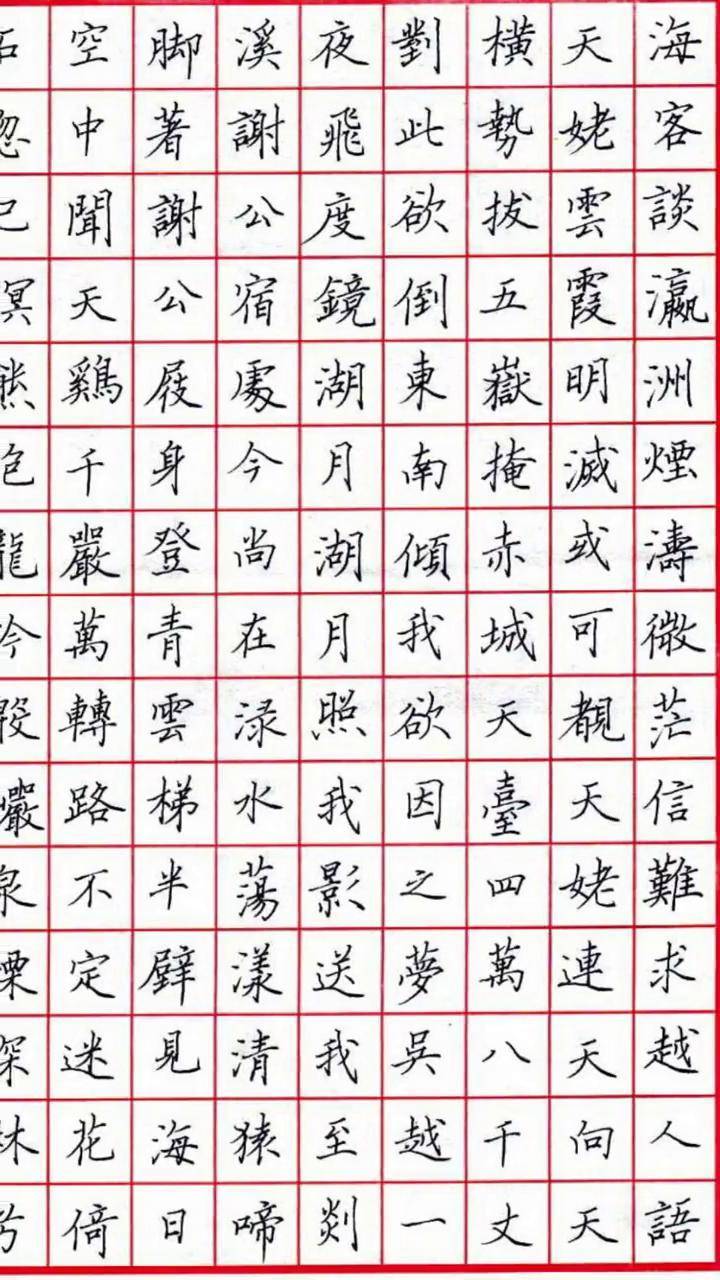 海客談瀛洲煙濤微茫信難求越人語
天姥雲霞明滅或可覩天姥連天向天
橫勢拔五嶽掩赤城天臺四萬八千丈
對此欲倒東南傾我欲因之夢吳越一
夜飛度鏡湖月湖月照我影送我至剡
溪謝公宿處今尚在渌水蕩漾清猿啼
脚著謝公屐身登青雲梯半壁見海日
空中聞天鷄千巖萬轉路不定迷花倚
石忽已暝熊咆龍吟殷巖泉慄深林兮